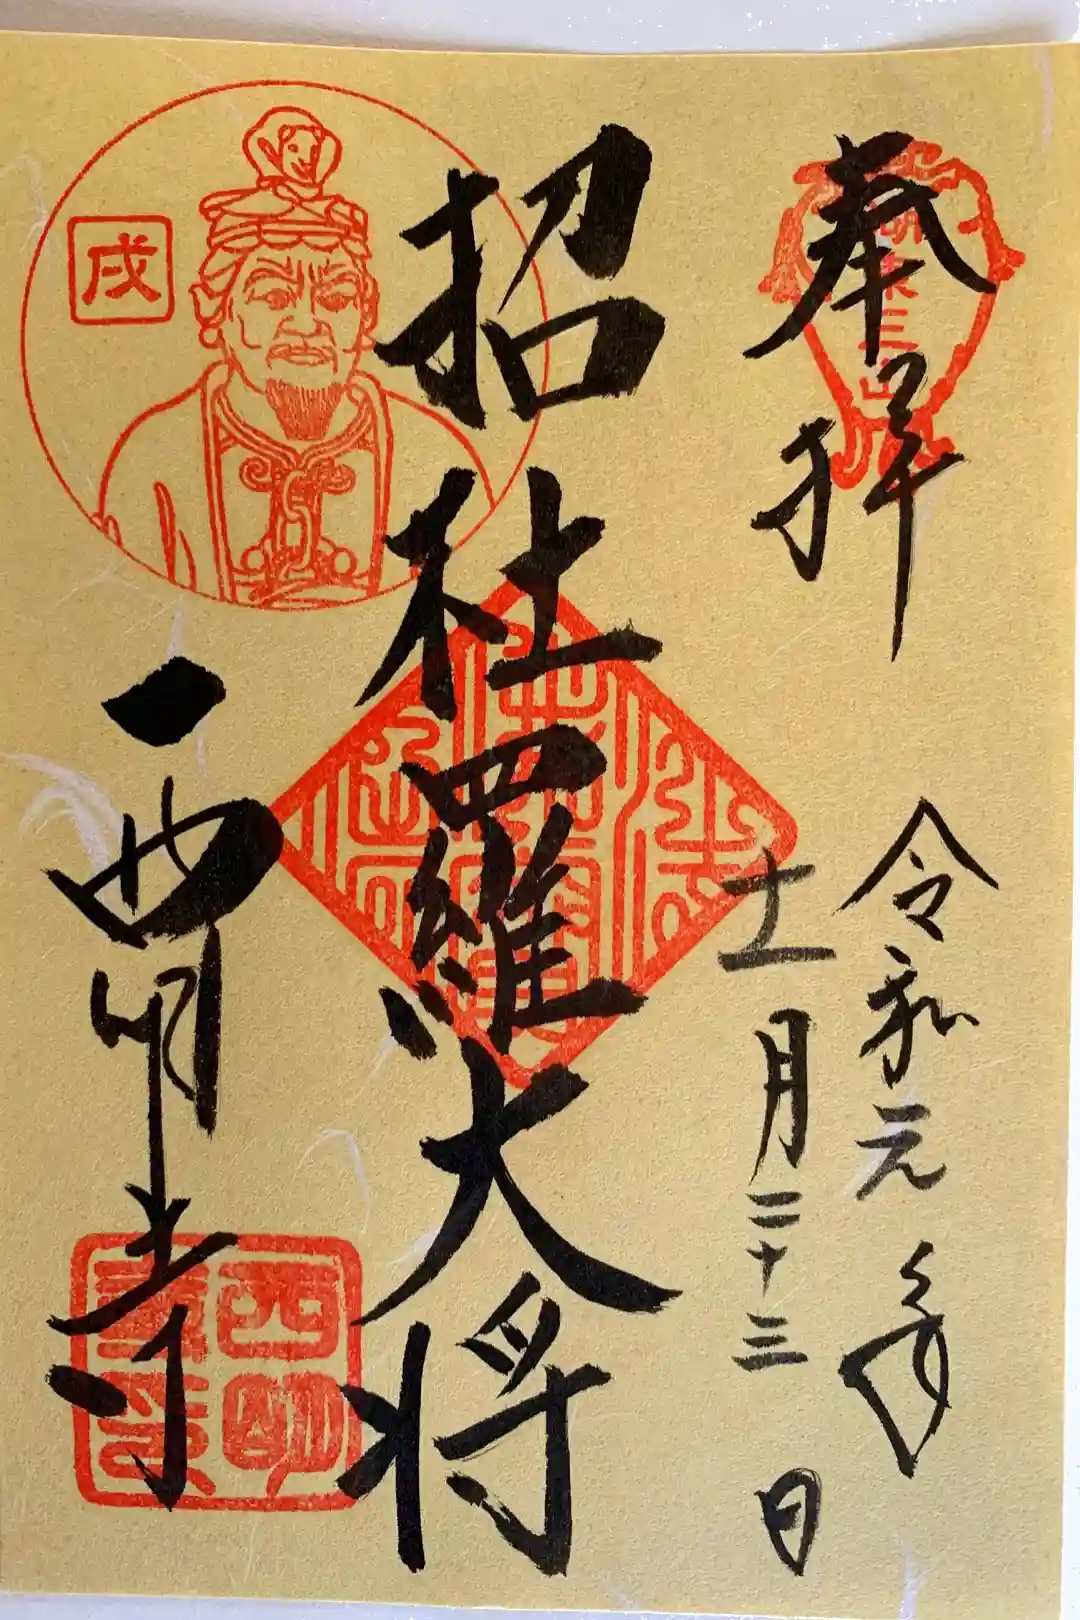 奉拝
湖東三山
令和元年
十一月二十三日
招杜羅大将
戌
西明寺
西明